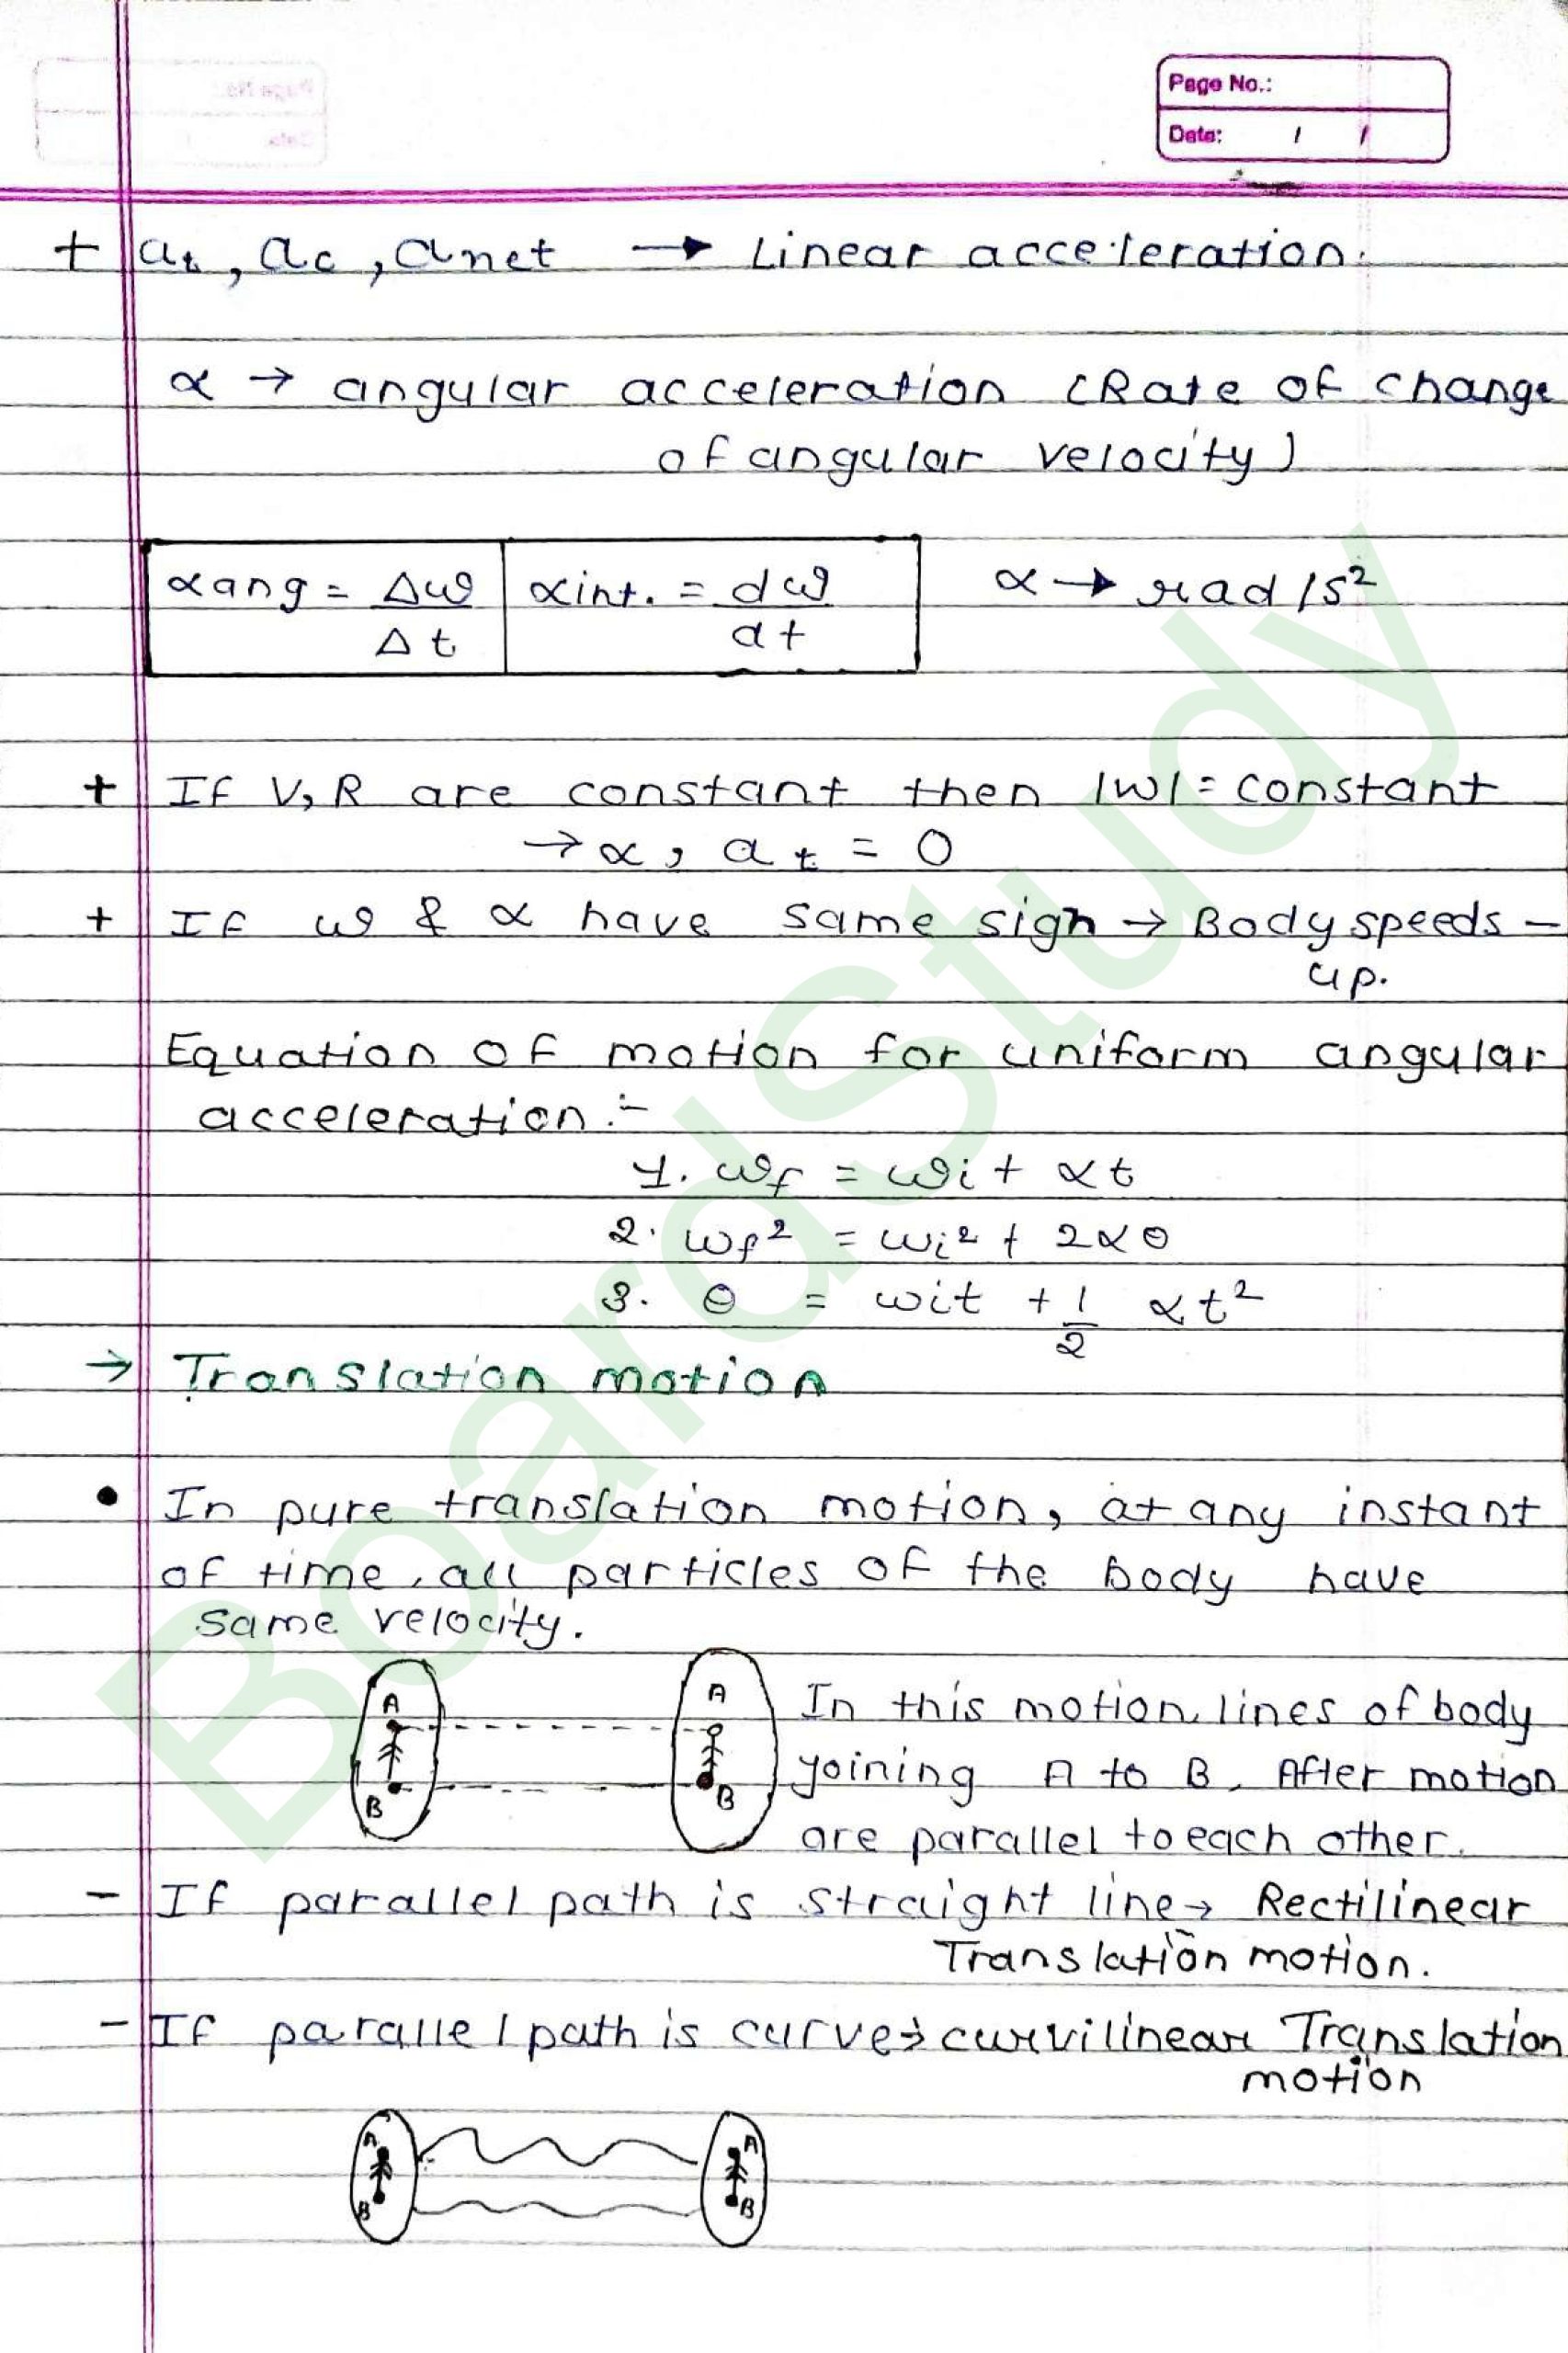 Page No.:
Date: / /
+ at, ac, anet → Linear acceleration.
α → angular acceleration (Rate of change
of angular velocity)
αang = Δω/Δt | αint. = dω/dt α → rad/s²
+ If V, R are constant then |w| = constant
→ α, at = 0
+ If ω & α have same sign → Body speeds -
up.
Equation of motion for uniform angular
acceleration :-
1. ωf = ωi + αt
2. ωf² = ωi² + 2αθ
3. θ = wit + 1/2 αt²
→ Translation motion
• In pure translation motion, at any instant
of time, all particles of the body have
same velocity.
A A
B B
In this motion, lines of body
joining A to B, After motion
are parallel to each other.
- If parallel path is straight line → Rectilinear
Translation motion.
- If parallel path is curve → curvilinear Translation
motion
A A
B B
BoardStudy